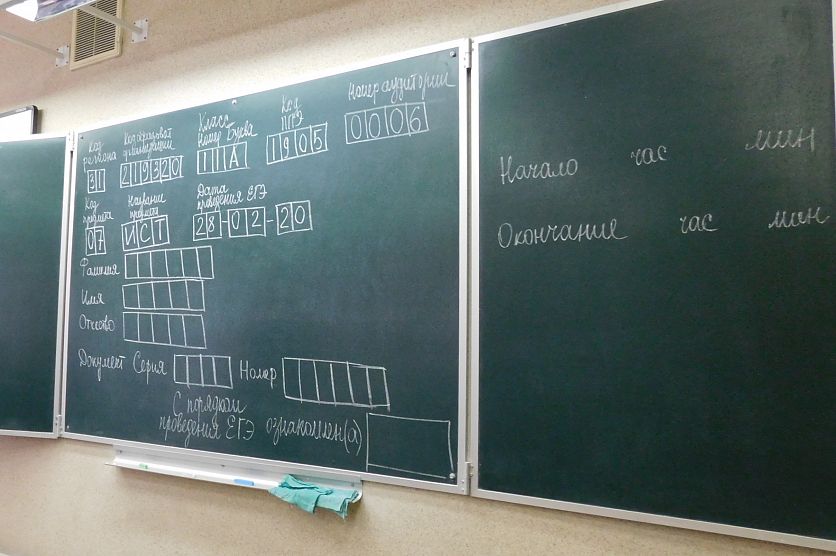 Код региона Код образовательной организации Класс Номер Буква Код ППЭ Номер аудитории
31 219320 11А 1905 0006
Код предмета Название предмета Дата проведения ЕГЭ
07 ИСТ 28-02-20
Фамилия
Имя
Отчество
Документ Серия Номер
С порядком
проведения ЕГЭ ознакомлен(а)
Начало час мин
Окончание час мин